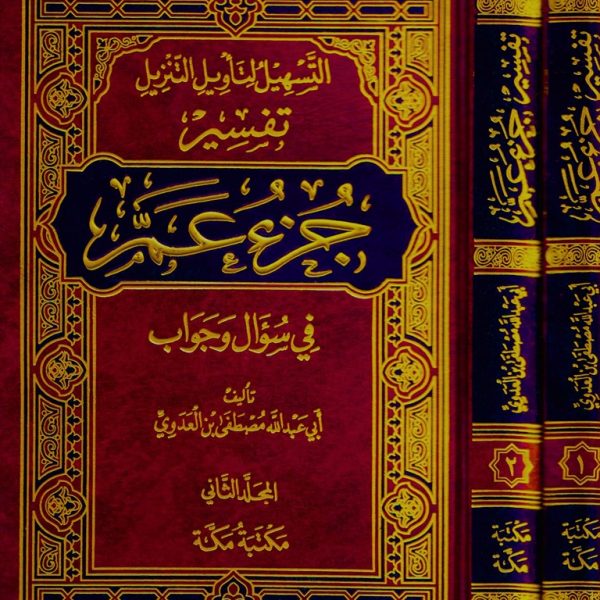 التسهيل لتأويل التنزيل
تفسير
جزء عم
في سؤال وجواب
تأليف
أبي عبد الله مصطفى بن العدوي
المجلد الثاني
مكتبة مكة
تفسير جزء عم
أبي عبد الله مصطفى بن العدوي
٢
مكتبة
مكة
تفسير جزء عم
أبي عبد الله مصطفى بن العدوي
١
مكتبة
مكة